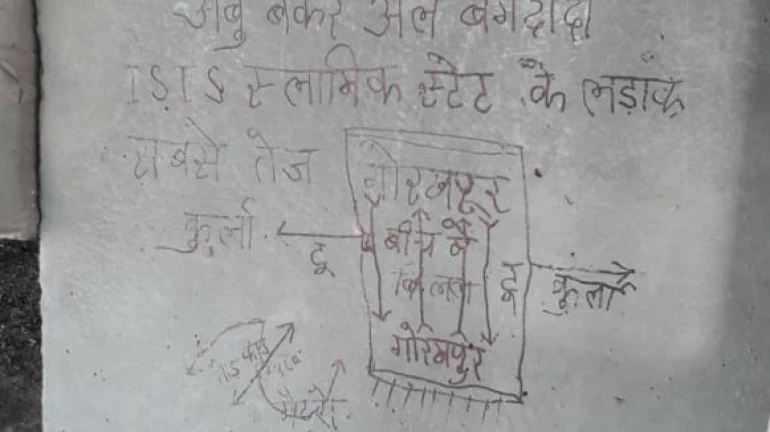 अबु बकर अल बगदादी
ISIS स्लामिक स्टेट के लड़ाके
सबसे तेज
गोरखपूर
कुर्ला
टू
बीच मे
टू
कुर्ला
गोरखपुर